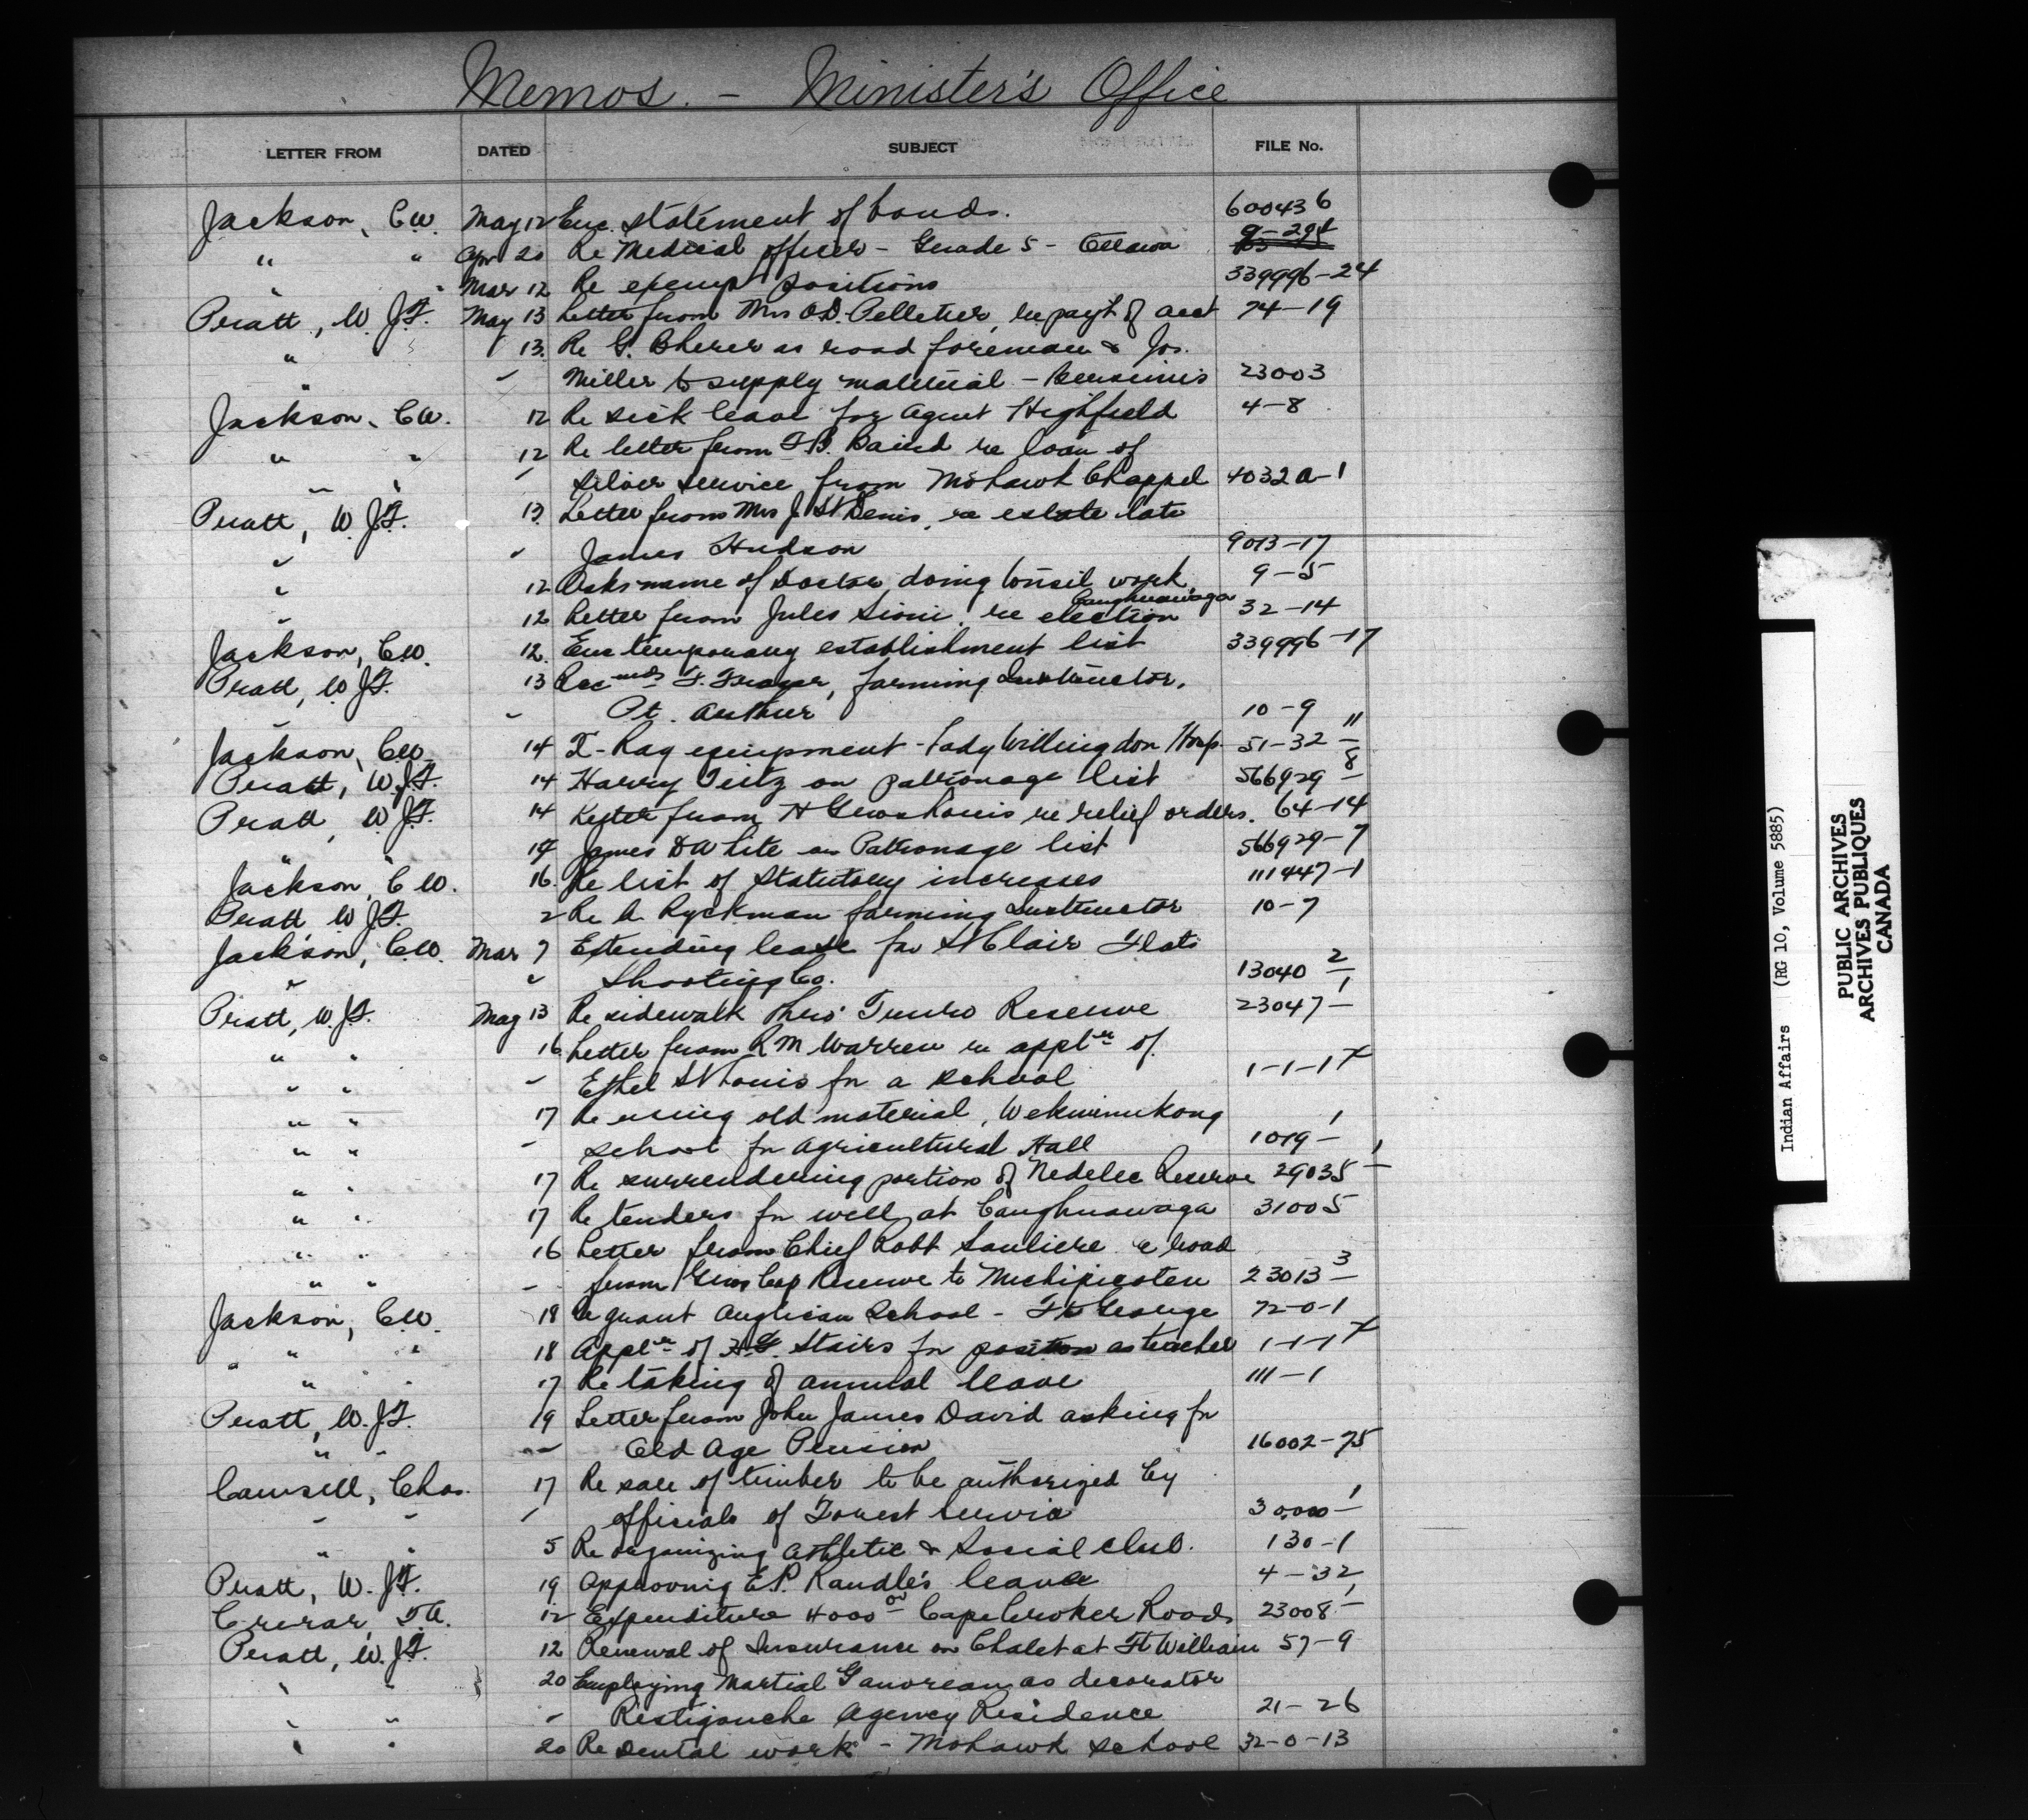 Memos. - Minister's Office
LETTER FROM DATED SUBJECT FILE No.
Jackson, C.W. May 12 Enc. statement of bonds. 600436
" " Apr 20 Re Medical Officer - Grade 5 - Ottawa 9-294
" " Mar 12 Re exempt positions 339996-24
Pratt, W.J.F. May 13 Letter from Mrs O.D. Pelletier, re payt of acct 74-19
" 13. Re G. as road foreman & Jos.
" " Miller to supply material - Bersimis 23003
Jackson, C.W. 12 Re sick leave for Agent Highfield 4-8
" " 12 Re letter from F.B. Baird re loan of
" " " silver service from Mohawk Chappel 4032A-1
Pratt, W.J.F. 13. Letter from Mrs J. St Denis, re estate late
" " James Hudson 9013-17
" 12 Asks name of Doctor doing tonsil work 9-5
" 12 Letter from Jules Sioui, re election Caughnawaga 32-14
Jackson, C.W. 12. Enc temporary establishment list 339996-17
Pratt, W.J.F. 13 Recmds F. Fraser, farming Instructor,
" " Pt. Arthur 10-9
Jackson, C.W. 14 X-Ray equipment - Lady Willingdon Hosp. 51-32-11
Pratt, W.J.F. 14 Harry Teitz on patronage list 566929-8
Pratt, W.J.F. 14 Letter from H re relief orders. 64-14
" " 14 James D White on Patronage list 566929-7
Jackson, C.W. 16. Re list of Statutory increases 111447-1
Pratt, W.J.F. 2 Re A. Ryckman farming Instructor 10-7
Jackson, C.W. Mar 7 Extending lease for St Clair Flats
" " Shooting Co. 13040-2
Pratt, W.J.F. May 13 Re sidewalk thro' Truro Reserve 23047-1
" " 16 Letter from R M Warren re appltn of
" " " Ethel St Louis for a school 1-1-17
" " 17 Re using old material, Wekwimikong
" " " school for Agricultural Hall 1019-1
" " 17 Re surrendering portion of Nedelec Reserve 29035-1
" " 17 Re tenders for well at Caughnawaga 31005
" " 16 Letter from Chief Robt Souliere re road
" " " from Gros Cap Reserve to Michipicoten 23013-3
Jackson, C.W. 18 Re grant Anglican School - Ft George 72-0-1
" " 18 Appltn of F.G. Stairs for position as teacher 1-1-17
" " 17 Re taking of annual leave 111-1
Pratt, W.J.F. 19 Letter from John James David asking for
" " " Old Age Pension 16002-75
Camsell, Chas. 17 Re sale of timber to be authorized by
" " " officials of Forest Service 30,000-1
" " 5 Re organizing Athletic & Social Club. 130-1
Pratt, W.J.F. 19. Approving E.P. Randle's leave 4-32
Crerar, T.A. 12 Expenditure 4000 00 Cape Croker Roads 23008-1
Pratt, W.J.F. 12 Renewal of Insurance on Chalet at Ft William 57-9
" " 20 Employing Martial Gauvreau as decorator
" " " Restigouche Agency Residence 21-26
" " 20 Re Dental work - Mohawk School 32-0-13
Indian Affairs (RG 10, Volume 5885)
PUBLIC ARCHIVES
ARCHIVES PUBLIQUES
CANADA